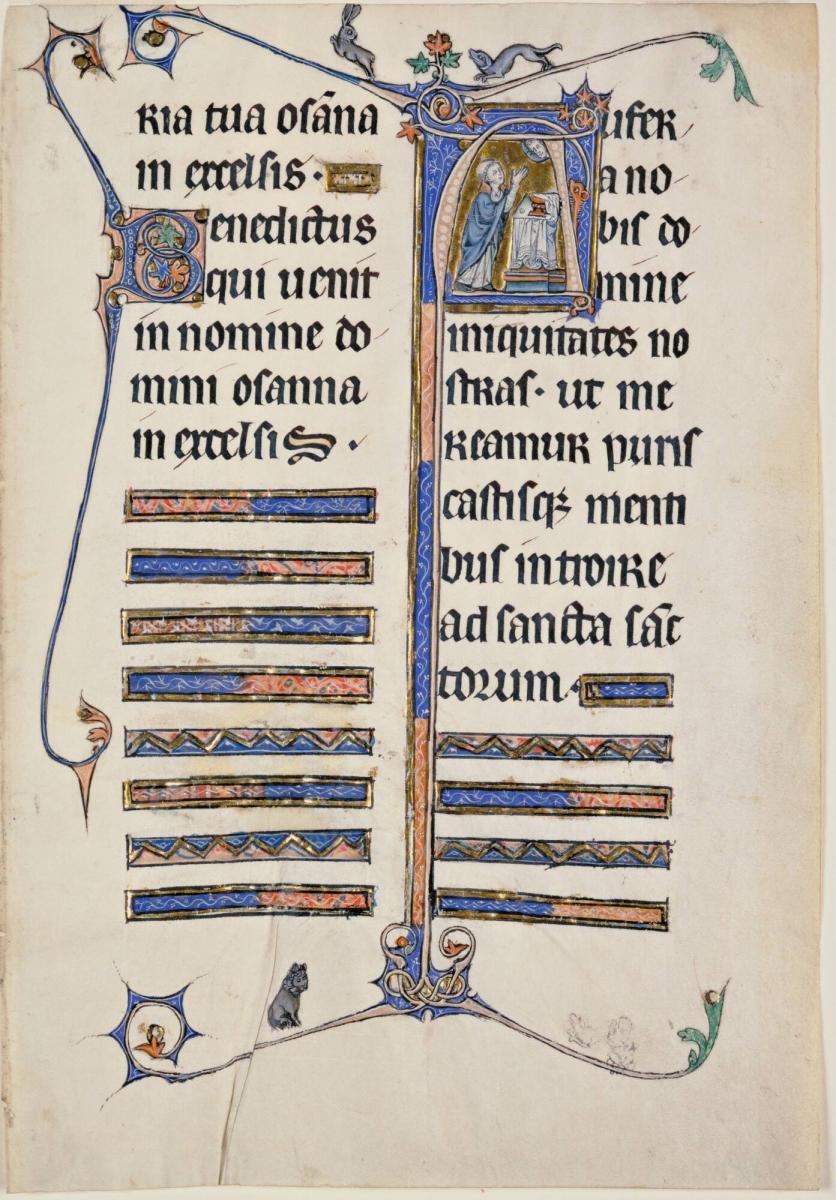 ria tua osāna
in excelsis ·
Benedictus
qui uenit
in nomine do
mini osanna
in excelsis ·
Aufer
a no
bis do
mine
iniquitates no
stras · ut me
reamur puris
castisqꝫ menti
bus introire
ad sancta sāc
torum ·